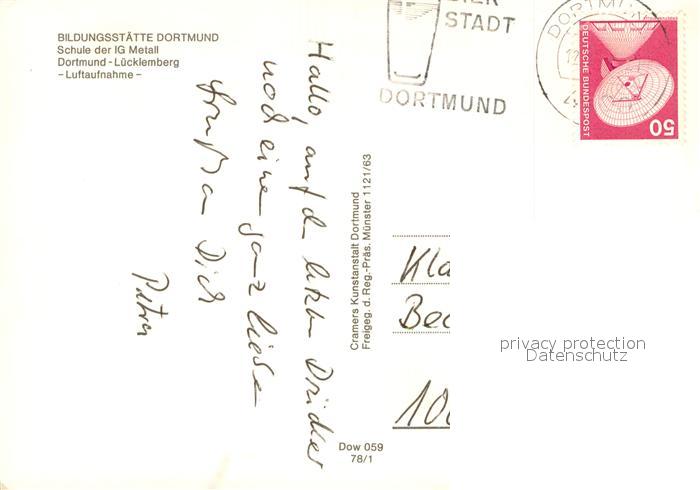 BILDUNGSSTÄTTE DORTMUND
Schule der IG Metall
Dortmund - Lücklemberg
- Luftaufnahme -
STADT
DORTMUND
DORTMUN
DEUTSCHE BUNDESPOST
50
Hallo, auf den letzten Drücker
noch einen ganz lieben
Gruß an Dich
Petra
Cramers Kunstanstalt Dortmund
Freigeg. d. Reg.-Präs. Münster 1121/63
Kla
Bec
100
privacy protection
Datenschutz
Dow 059
78/1